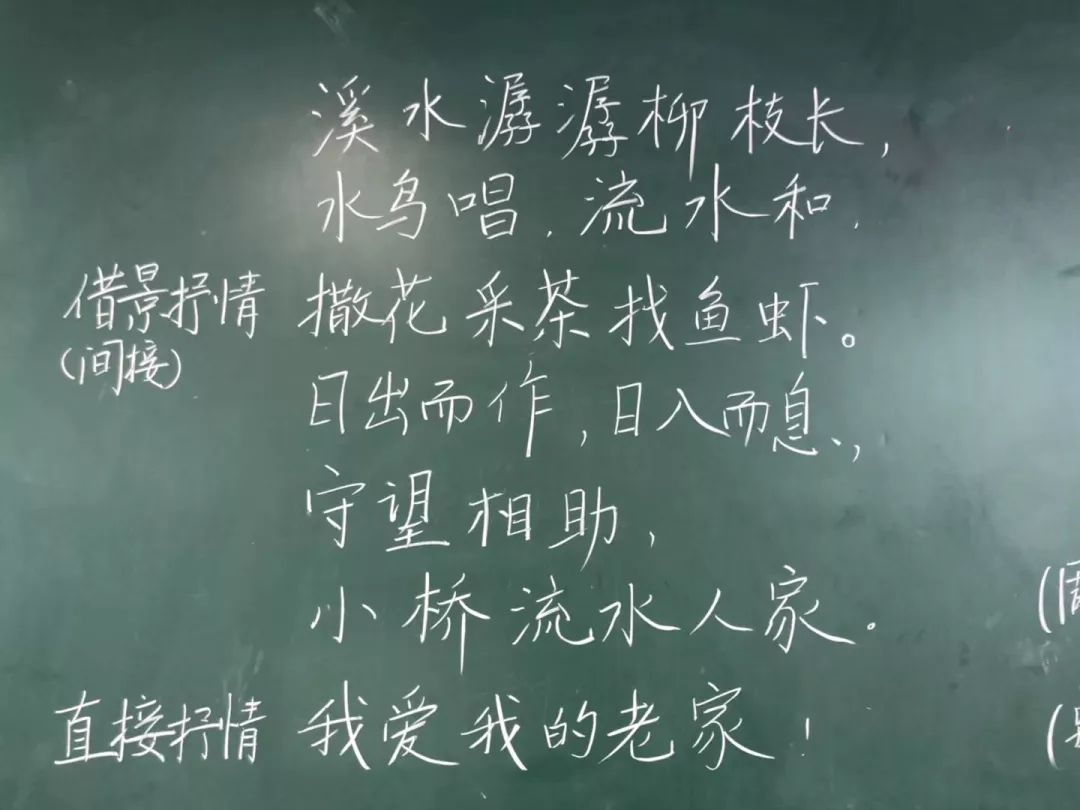 溪水潺潺柳枝长,
水鸟唡,流水和.
借景抒情 撒花采茶找鱼虾。
(间接)
日出而作,日入而息,
守望相助,
小桥流水人家.
直接抒情 我爱我的老家!